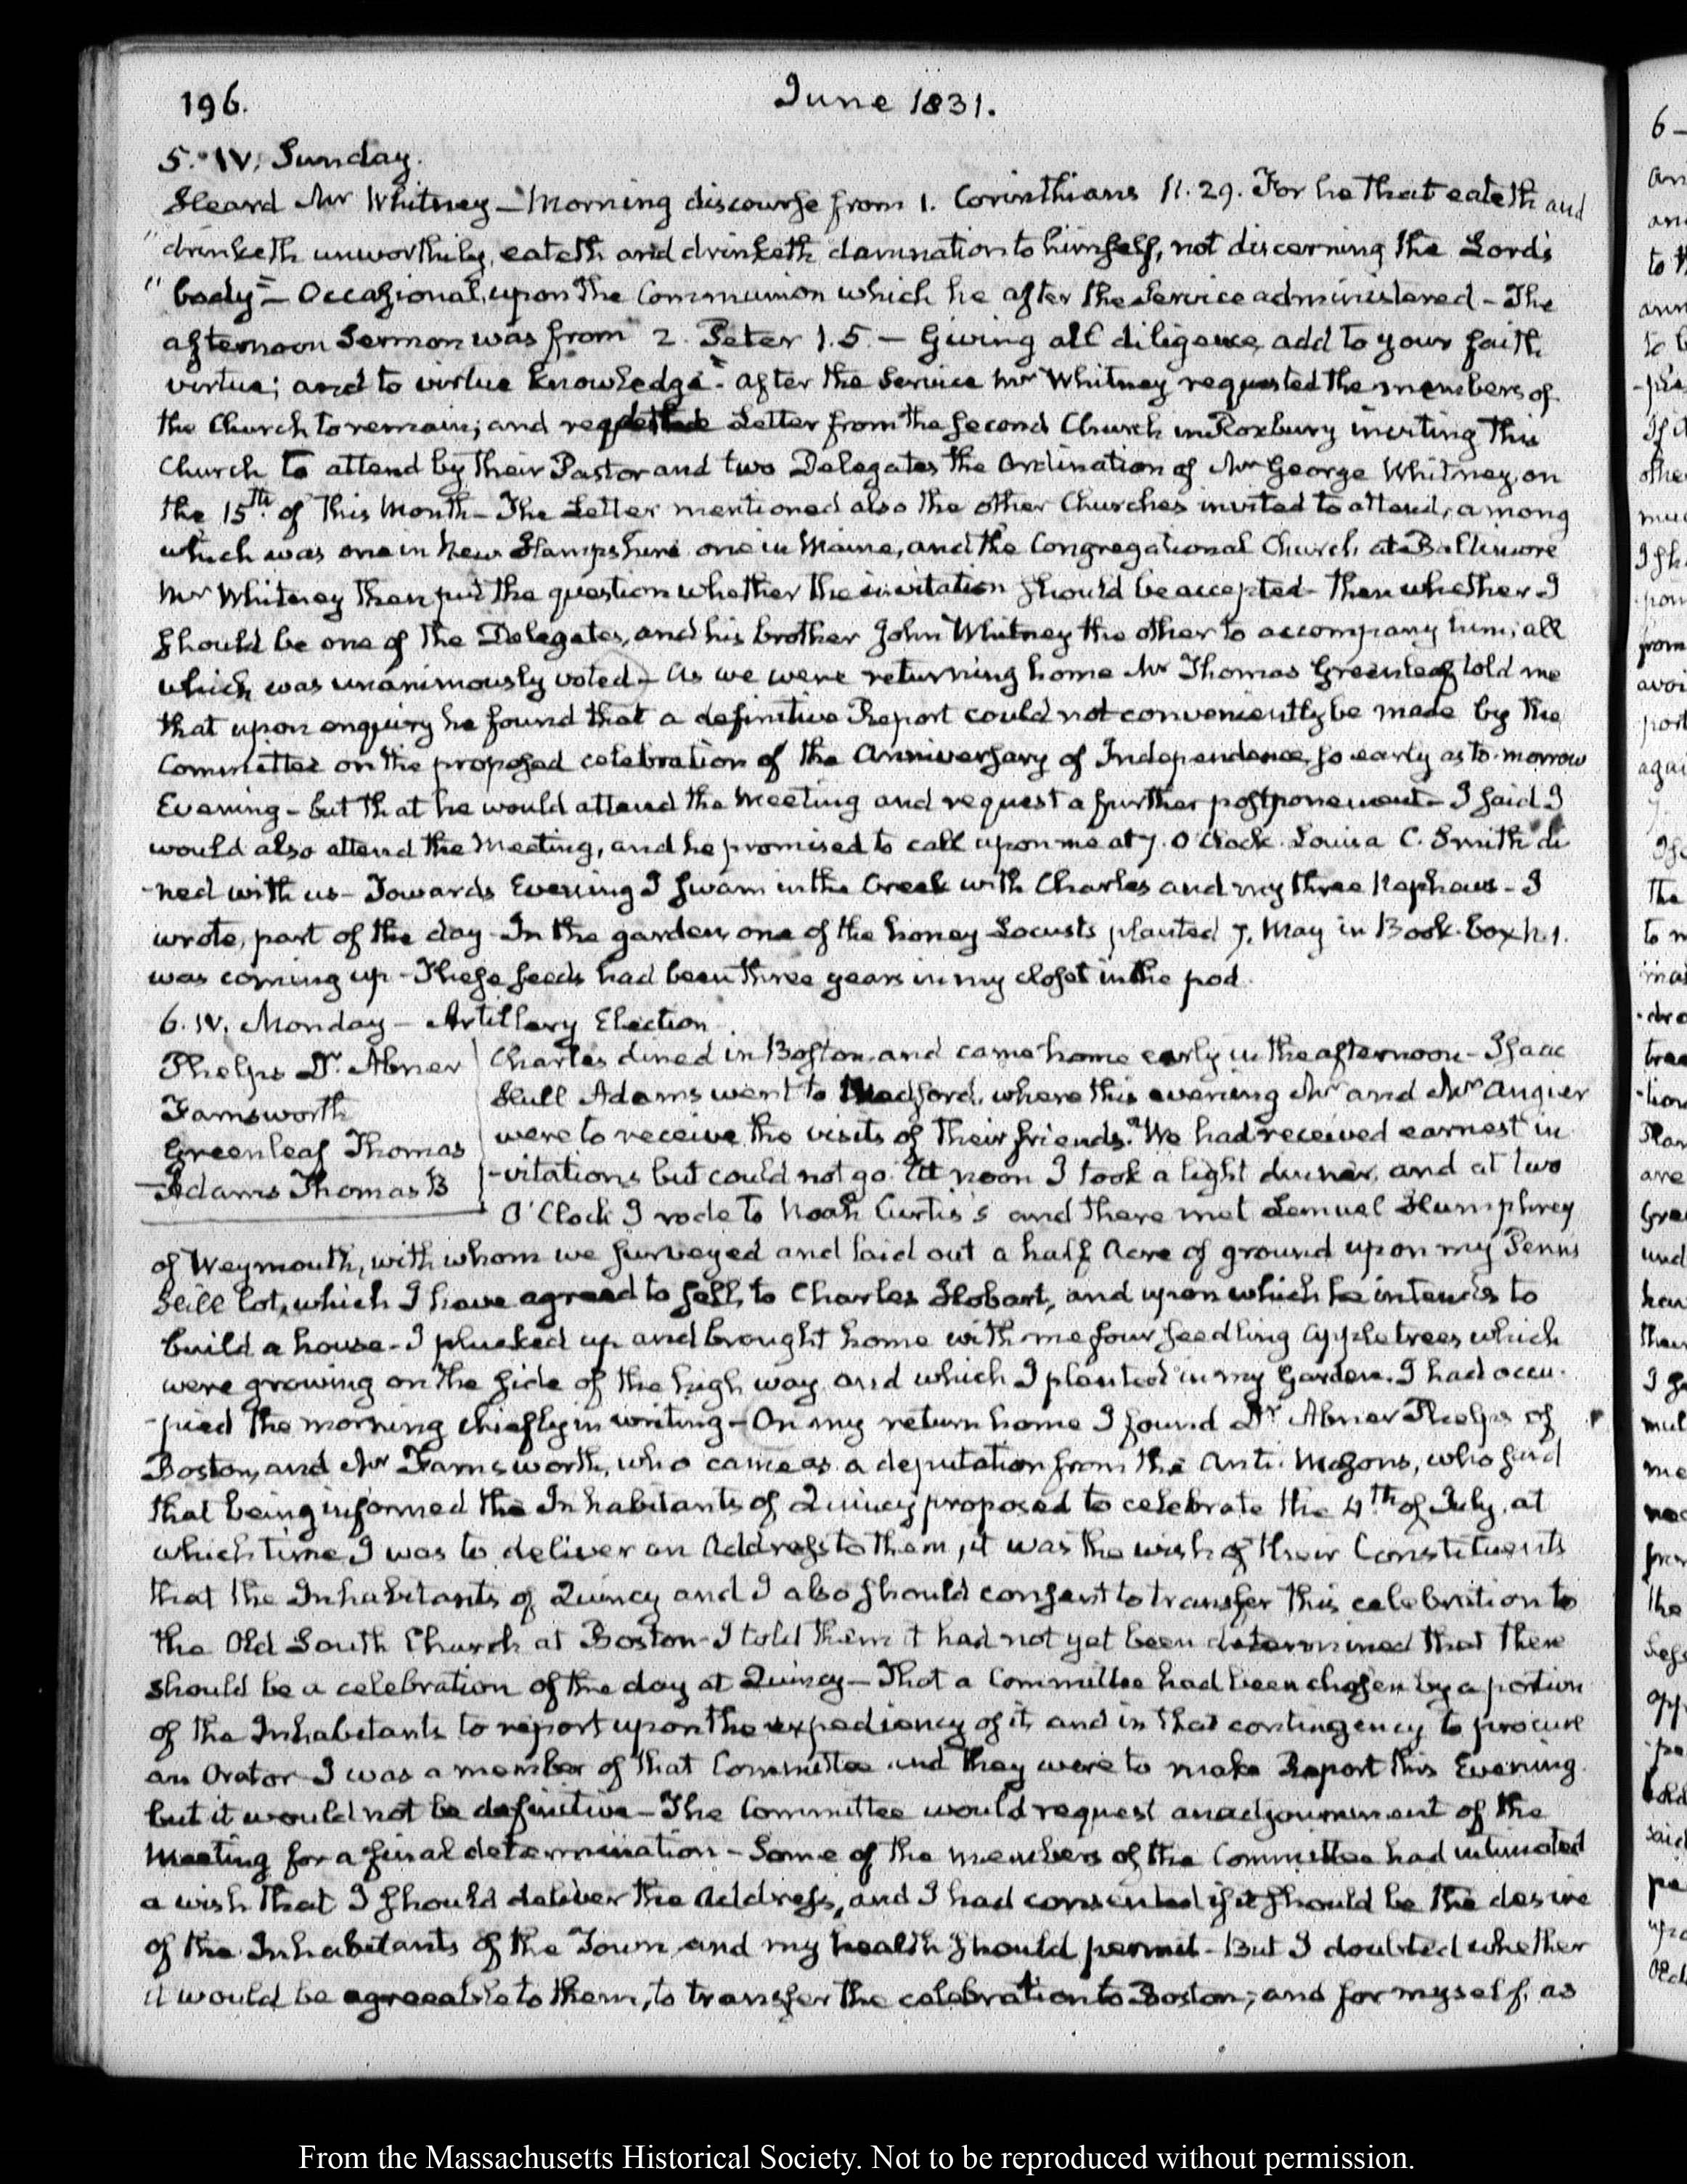 196.
June 1831.
5. IV. Sunday.
Heard Mr Whitney — Morning discourse from 1. Corinthians 11. 29. For he that eateth and
" drinketh unworthily, eateth and drinketh damnation to himself, not discerning the Lord's
" body" — Occasional, upon the Communion which he after the Service administered — The
afternoon Sermon was from 2. Peter 1. 5. — Giving all diligence, add to your faith
virtue; and to virtue knowledge". After the Service Mr Whitney requested the members of
the Church to remain; and Letter from the second Church in Roxbury inviting this
Church to attend by their Pastor and two Delegates the Ordination of Mr George Whitney, on
the 15th. of this Month — The Letter mentioned also the other Churches invited to attend, among
which was one in New Hampshire one in Maine, and the Congregational Church at Baltimore
Mr Whitney then put the question whether the invitation should be accepted — then whether I
should be one of the Delegates, and his brother John Whitney the other to accompany him; all
which was unanimously voted — As we were returning home Mr Thomas Greenleaf told me
that upon enquiry he found that a definitive Report could not conveniently be made by the
Committee on the proposed celebration of the Anniversary of Independence, so early as to-morrow
Evening — but that he would attend the Meeting and request a further postponement — I said I
would also attend the Meeting, and he promised to call upon me at 7. O'Clock. Louisa C. Smith di
-ned with us — Towards Evening I swam in the Creek with Charles and my three Nephews — I
wrote, part of the day — In the garden, one of the honey Locusts planted 7. May in Book-box N. 1.
was coming up — These seeds had been three years in my closet in the pod.
6. IV. Monday — Artillery Election.
Phelps Dr. Abner
Farnsworth
Greenleaf Thomas
Adams Thomas B
Charles dined in Boston and came home early in the afternoon — Isaac
Hull Adams went to Medford, where this evening Mr and Mrs Angier
were to receive the visits of their friends. We had received earnest in
-vitations but could not go. At noon I took a light dinner, and at two
O'Clock I rode to Noah Curtis's and there met Lemuel Humphrey
of Weymouth, with whom we surveyed and laid out a half Acre of ground upon my Penns
Hill lot, which I have agreed to sell, to Charles Hobart, and upon which he intends to
build a house — I plucked up and brought home with me four seedling apple trees which
were growing on the side of the high way and which I planted in my Garden. I had occu-
-pied the morning chiefly in writing — On my return home I found Dr Abner Phelps of
Boston, and Mr Farnsworth, who came as a deputation from the Anti-Masons, who said
that being informed the Inhabitants of Quincy proposed to celebrate the 4th of July, at
which time I was to deliver an Address to them, it was the wish of their Constituents
that the Inhabitants of Quincy and I also should consent to transfer this celebration to
the Old South Church at Boston — I told them it had not yet been determined that there
should be a celebration of the day at Quincy — That a Committee had been chosen by a portion
of the Inhabitants to report upon the expediency of it, and in that contingency to procure
an Orator — I was a member of that Committee and they were to make Report this Evening
but it would not be definitive — The Committee would request an adjournment of the
Meeting for a final determination — Some of the members of the Committee had intimated
a wish that I should deliver the Address, and I had consented if it should be the desire
of the Inhabitants of the Town, and my health should permit — But I doubted whether
it would be agreeable to them, to transfer the celebration to Boston; and for myself, as
From the Massachusetts Historical Society. Not to be reproduced without permission.